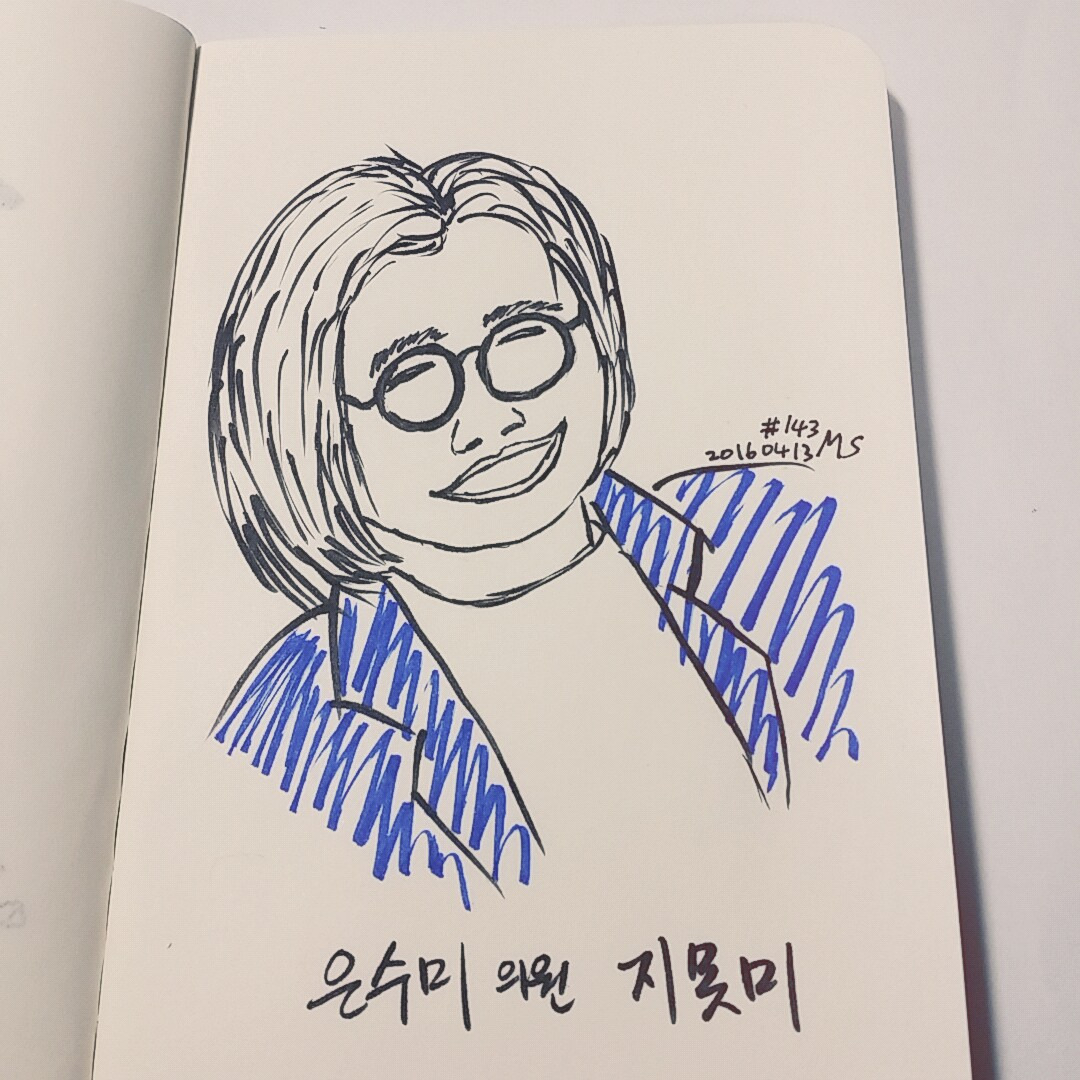 #143
20160413 MS
은수미 의원 지못미